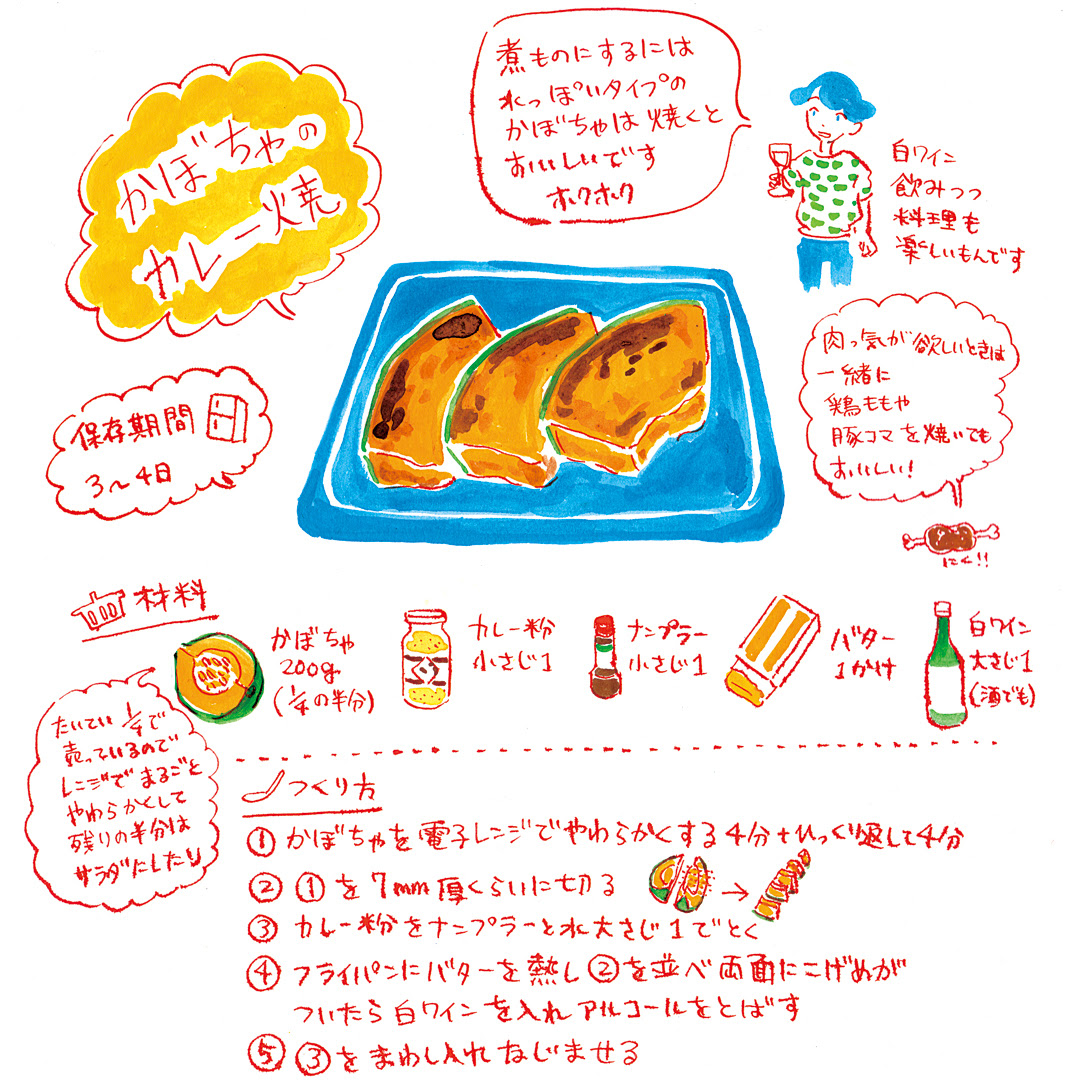 かぼちゃの
カレー焼
煮ものにするには
水っぽいタイプの
かぼちゃは焼くと
おいしいです
ホクホク
白ワイン
飲みつつ
料理も
楽しいもんです
肉っ気が欲しいときは
一緒に
鶏ももや
豚コマを焼いても
おいしい!
にく!!
保存期間
3〜4日
材料
かぼちゃ
200g
(1/4の半分)
カレー粉
小さじ1
ナンプラー
小さじ1
バター
1かけ
白ワイン
大さじ1
(酒でも)
たいてい1/4で
売っているので
レンジでまるごと
やわらかくして
残りの半分は
サラダにしたり
つくり方
① かぼちゃを電子レンジでやわらかくする 4分+ひっくり返して4分
② ①を7mm厚くらいに切る
③ カレー粉をナンプラーと水大さじ1でとく
④ フライパンにバターを熱し②を並べ両面にこげめが
ついたら白ワインを入れアルコールをとばす
⑤ ③をまわし入れなじませる